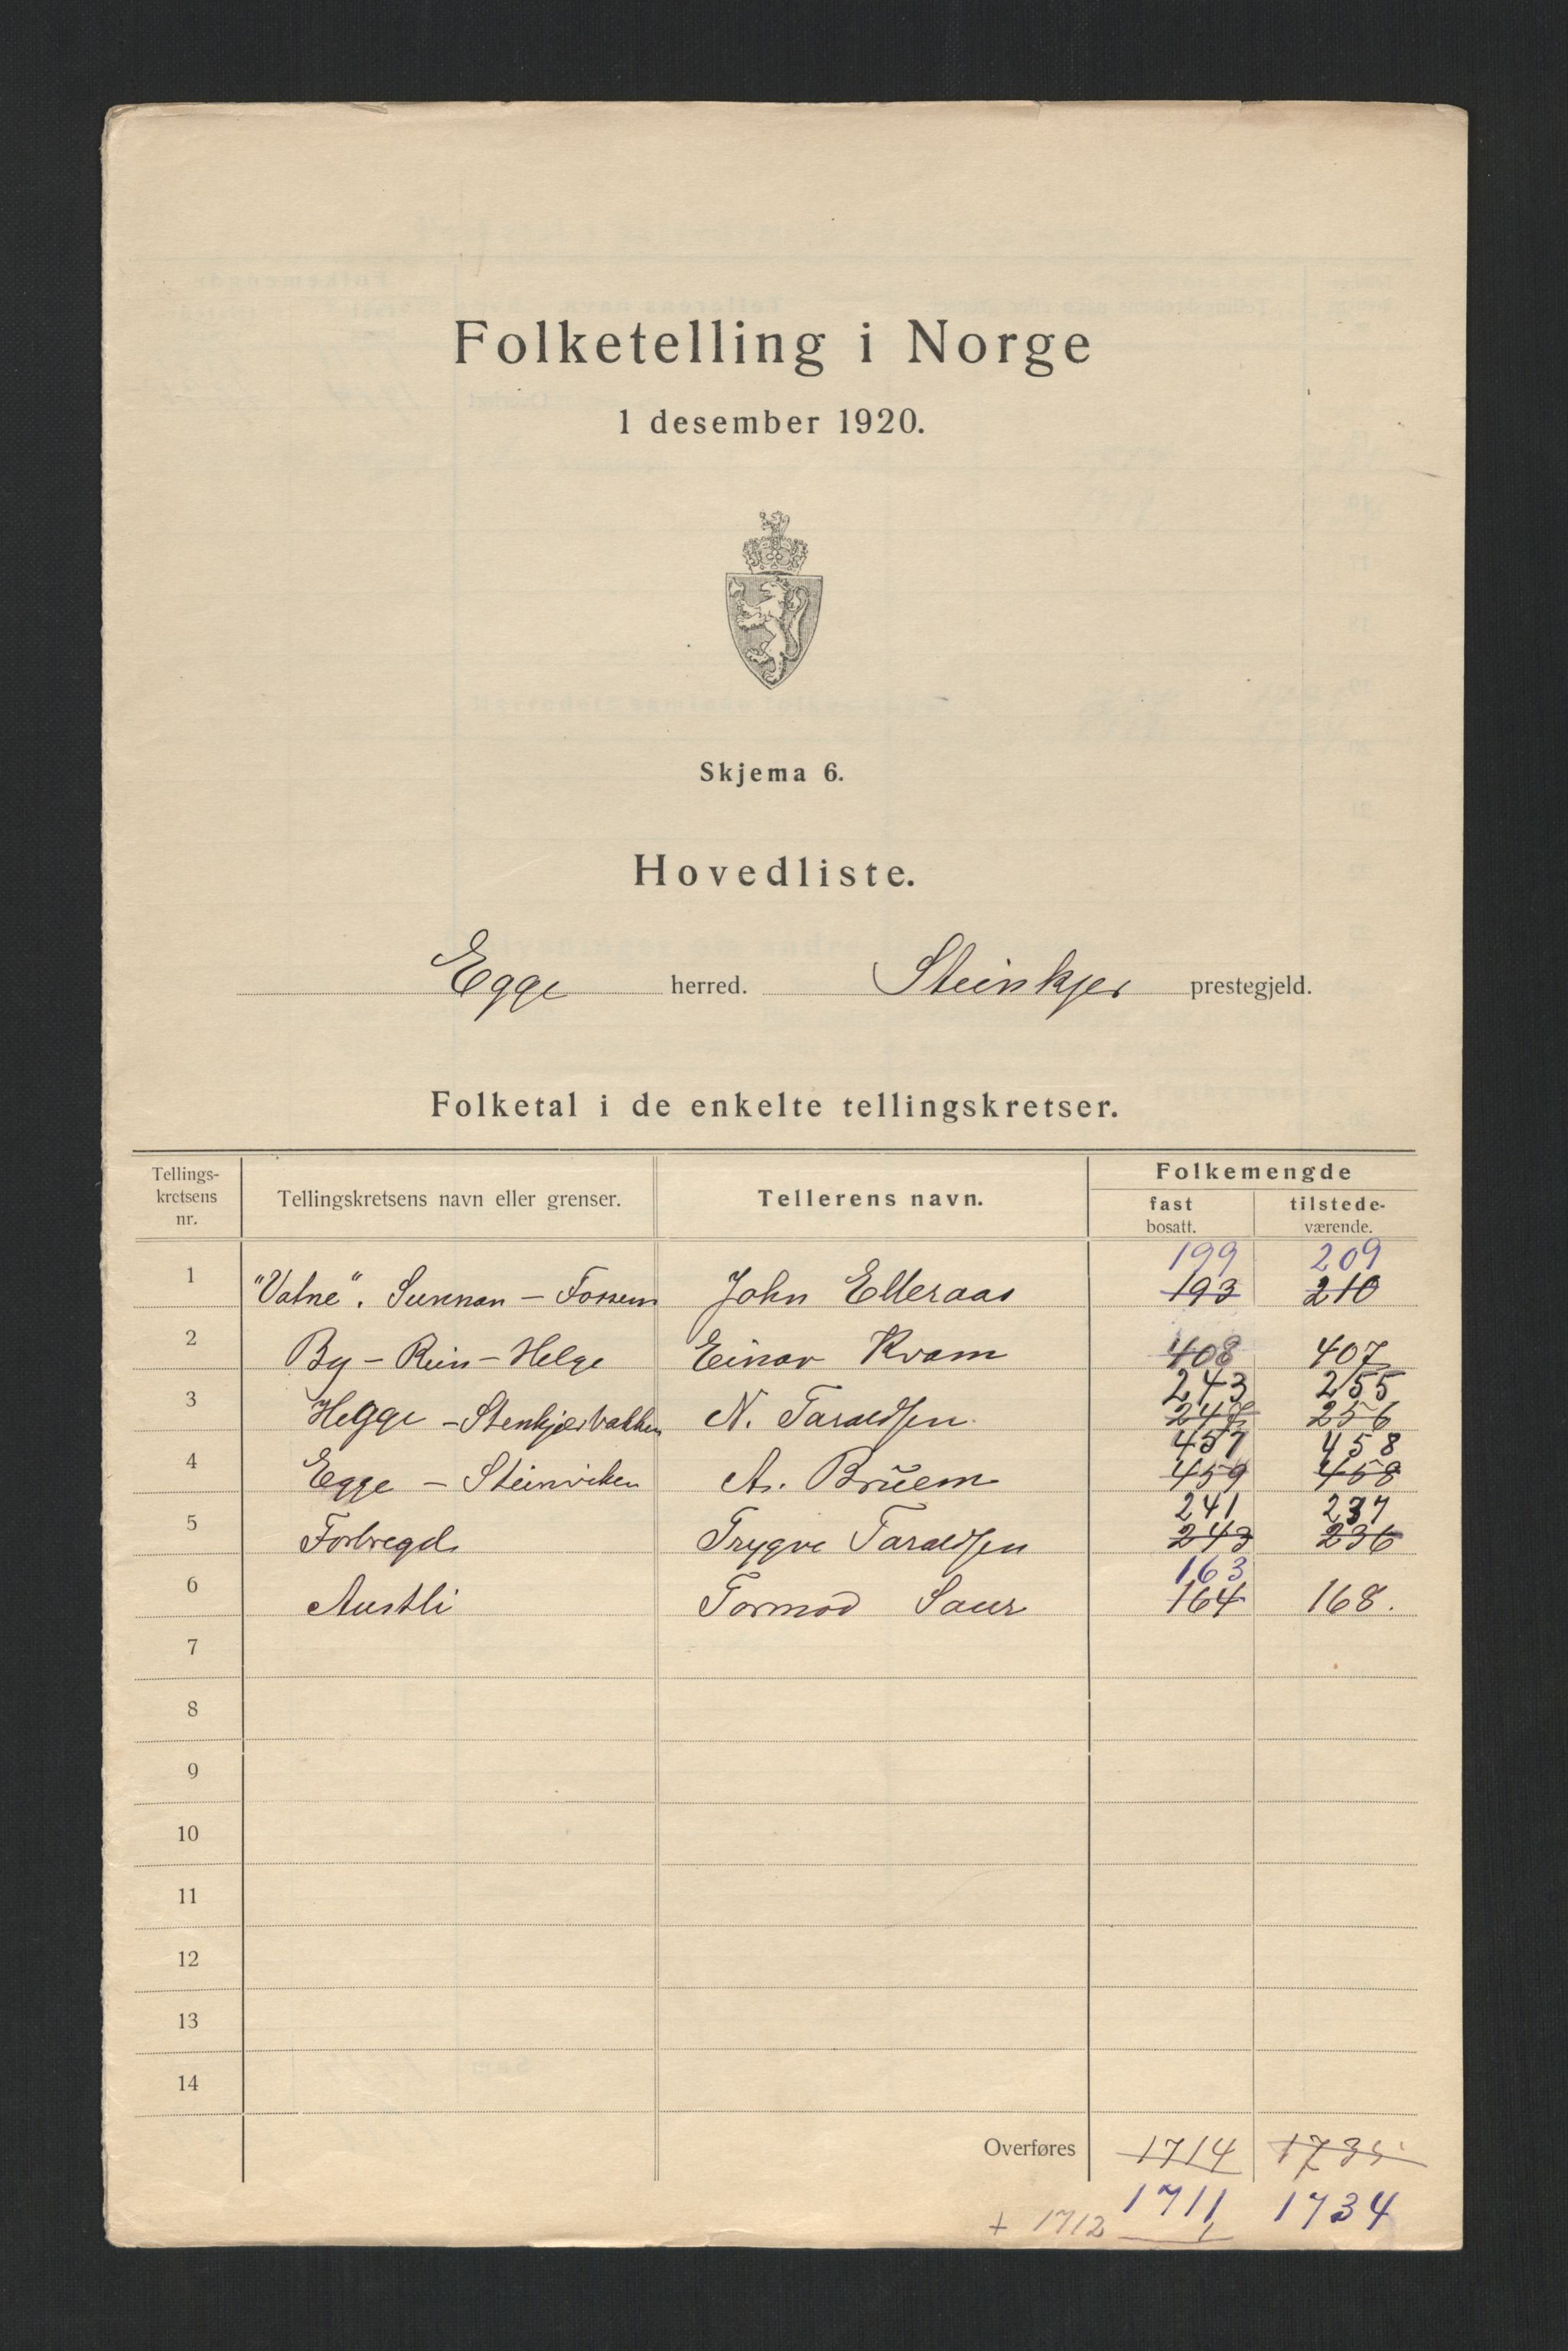 Folketelling i Norge
1 desember 1920.
Skjema 6.
Hovedliste.
Egge herred. Steinkjer prestegjeld.
Folketal i de enkelte tellingskretser.
Tellings-
kretsens
nr.
Tellingskretsens navn eller grenser.
Tellerens navn.
Folkemengde
fast
bosatt.
tilstede-
værende.
199 209
1 "Vatne". Sunnan - Fossem John Elleraas 193 210
2 By - Rein - Helge Einar Kvam 408 407
243 255
3 Hegge - Stenkjerbakken N. Taraldsen 244 256
457 458
4 Egge - Steinviken A. Brüem 459 458
241 237
5 Forbregd Trygve Taraldsen 243 236
163
6 Austli Tormod Saur 164 168.
7
8
9
10
11
12
13
14
Overføres 1714 1735
1711 1734
+ 1712 1